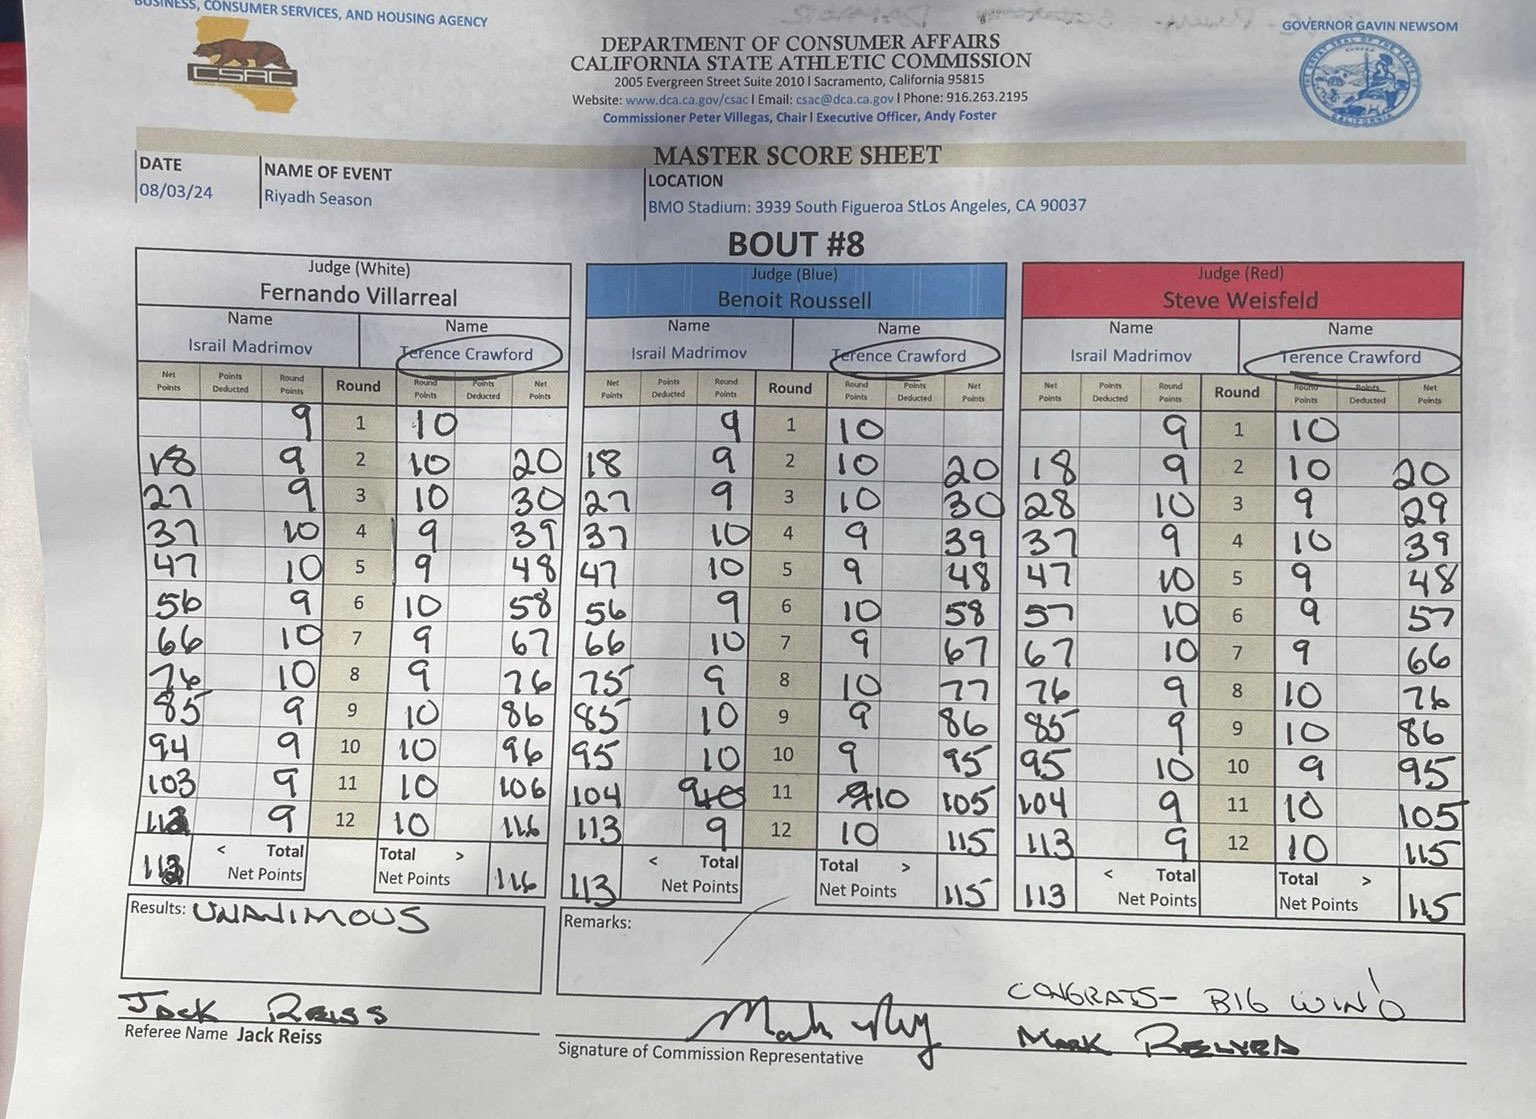 BUSINESS, CONSUMER SERVICES, AND HOUSING AGENCY
GOVERNOR GAVIN NEWSOM
CSAC
DEPARTMENT OF CONSUMER AFFAIRS
CALIFORNIA STATE ATHLETIC COMMISSION
2005 Evergreen Street Suite 2010 | Sacramento, California 95815
Website: www.dca.ca.gov/csac | Email: csac@dca.ca.gov | Phone: 916.263.2195
Commissioner Peter Villegas, Chair | Executive Officer, Andy Foster
MASTER SCORE SHEET
DATE
08/03/24
NAME OF EVENT
Riyadh Season
LOCATION
BMO Stadium: 3939 South Figueroa StLos Angeles, CA 90037
BOUT #8
Judge (White) Judge (Blue) Judge (Red)
Fernando Villarreal Benoit Roussell Steve Weisfeld
Name Name Name Name Name Name
Israil Madrimov Terence Crawford Israil Madrimov Terence Crawford Israil Madrimov Terence Crawford
Net Points Points Deducted Round Points Round Round Points Points Deducted Net Points Net Points Points Deducted Round Points Round Round Points Points Deducted Net Points Net Points Points Deducted Round Points Round Round Points Points Deducted Net Points
9 1 10 9 1 10 9 1 10
18 9 2 10 20 18 9 2 10 20 18 9 2 10 20
27 9 3 10 30 27 9 3 10 30 28 10 3 9 29
37 10 4 9 39 37 10 4 9 39 37 9 4 10 39
47 10 5 9 48 47 10 5 9 48 47 10 5 9 48
56 9 6 10 58 56 9 6 10 58 57 10 6 9 57
66 10 7 9 67 66 10 7 9 67 67 10 7 9 66
76 10 8 9 76 75 9 8 10 77 76 9 8 10 76
85 9 9 10 86 85 10 9 9 86 85 9 9 10 86
94 9 10 10 96 95 10 10 9 95 95 10 10 9 95
103 9 11 10 106 104 9 11 10 105 104 9 11 10 105
112 9 12 10 116 113 9 12 10 115 113 9 12 10 115
< Total Total > < Total Total > < Total Total >
Net Points Net Points 116 113 Net Points Net Points 115 113 Net Points Net Points 115
Results: UNANIMOUS
Remarks:
CONGRATS- BIG WIN!
Jack Reiss
Referee Name Jack Reiss
Mark Relyea
Signature of Commission Representative